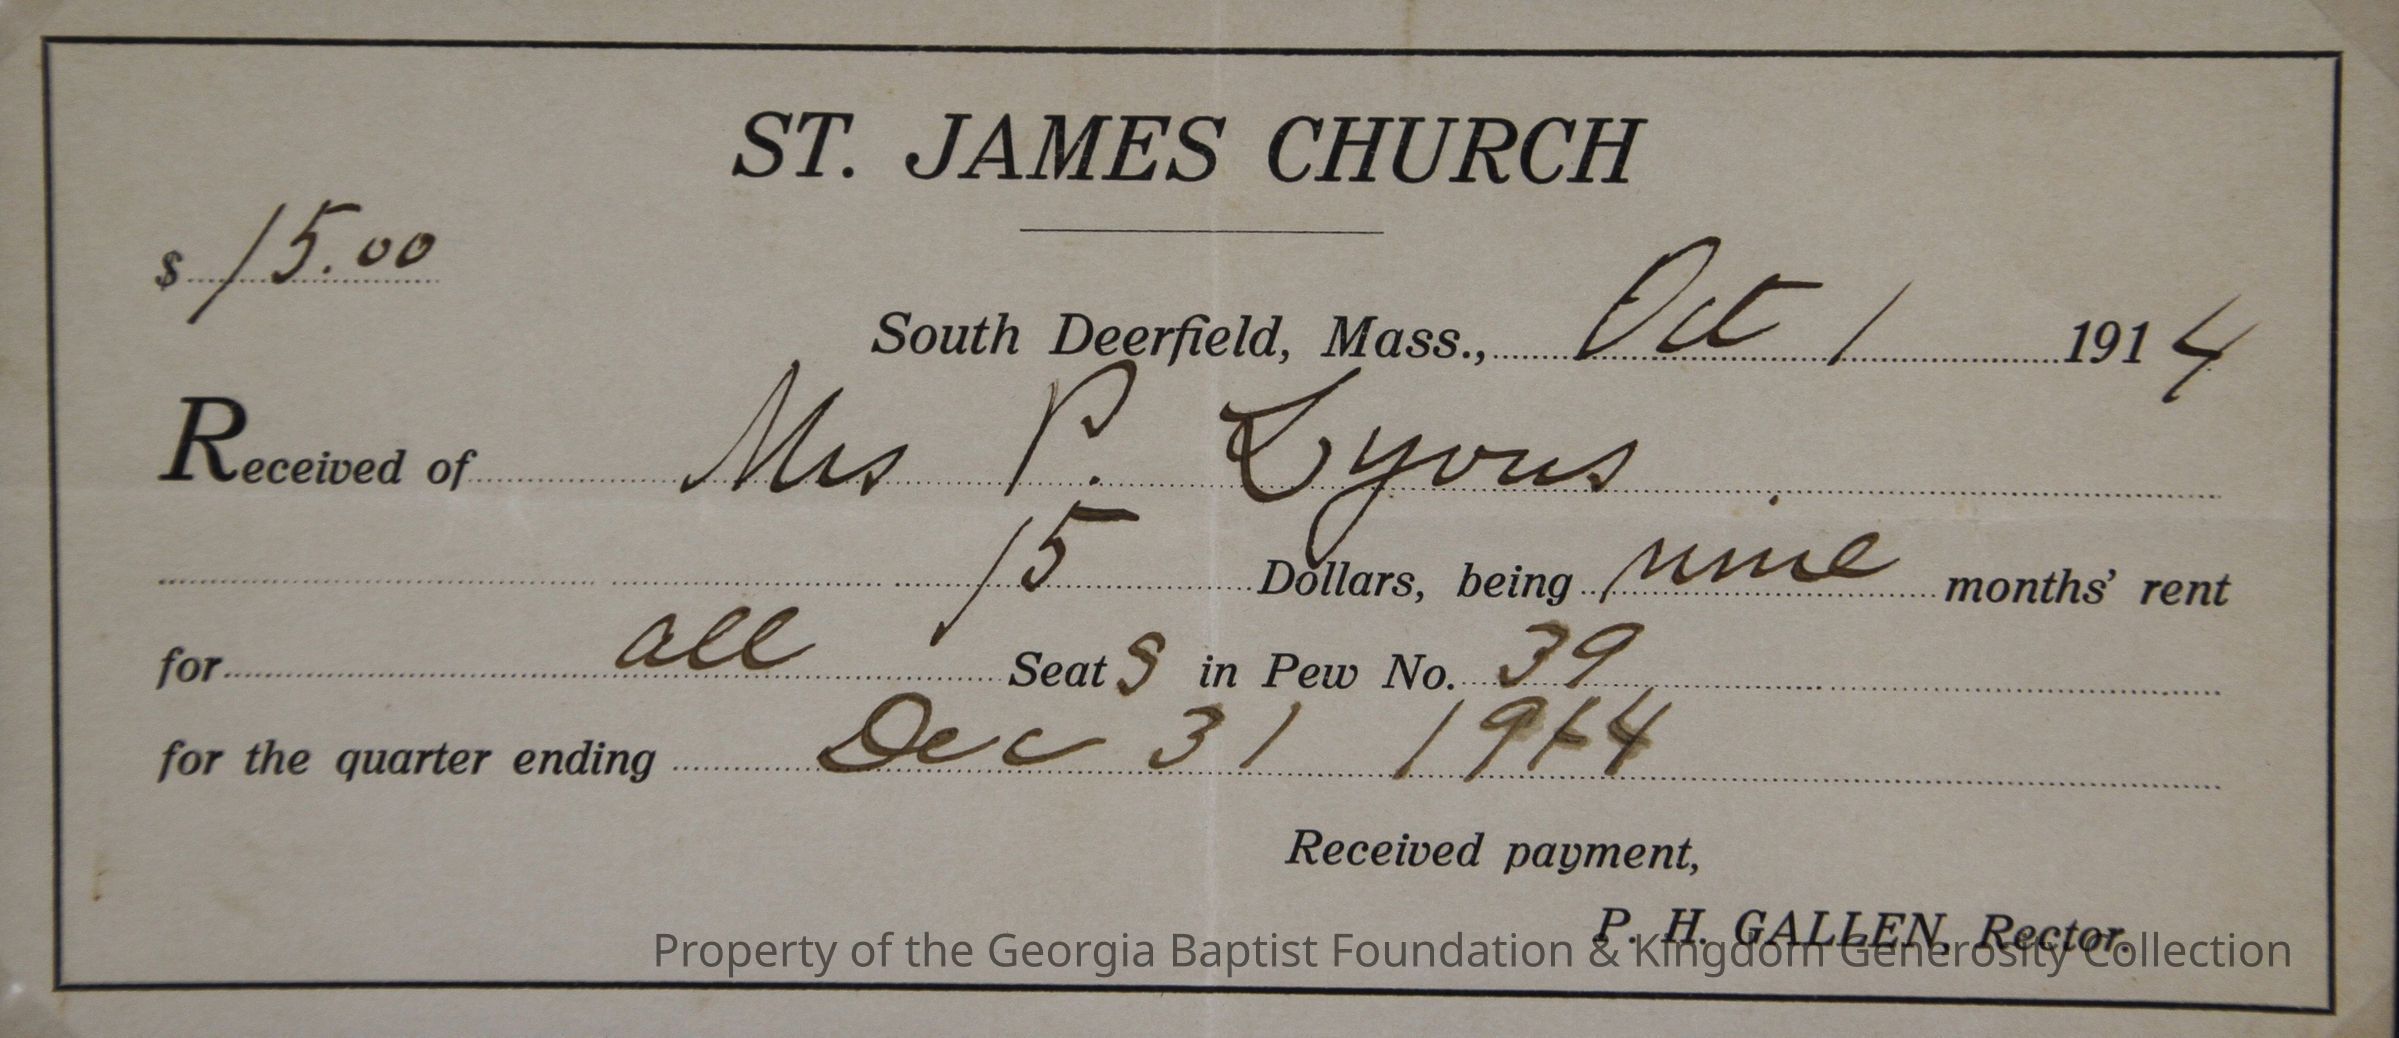 ST. JAMES CHURCH
$ 15.00
South Deerfield, Mass., Oct 1 1914
Received of Mrs P. Lyons
15 Dollars, being nine months' rent
for all Seats in Pew No. 39
for the quarter ending Dec 31 1914
Received payment,
P. H. GALLEN, Rector.
Property of the Georgia Baptist Foundation & Kingdom Generosity Collection